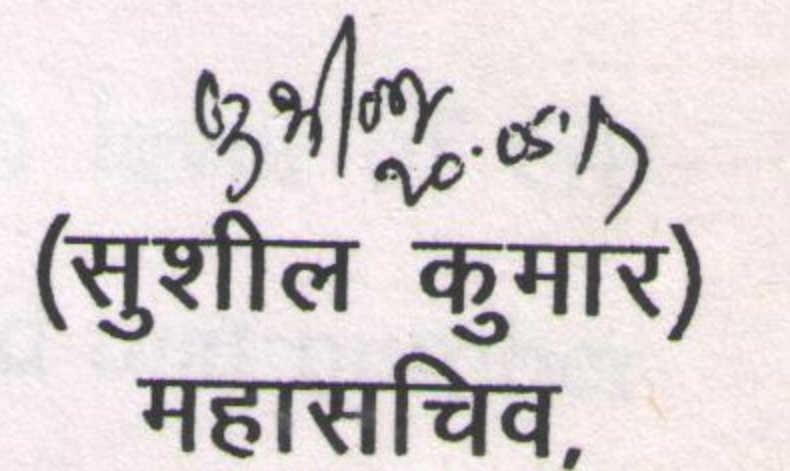 सुशील
20.05.17
(सुशील कुमार)
महासचिव,